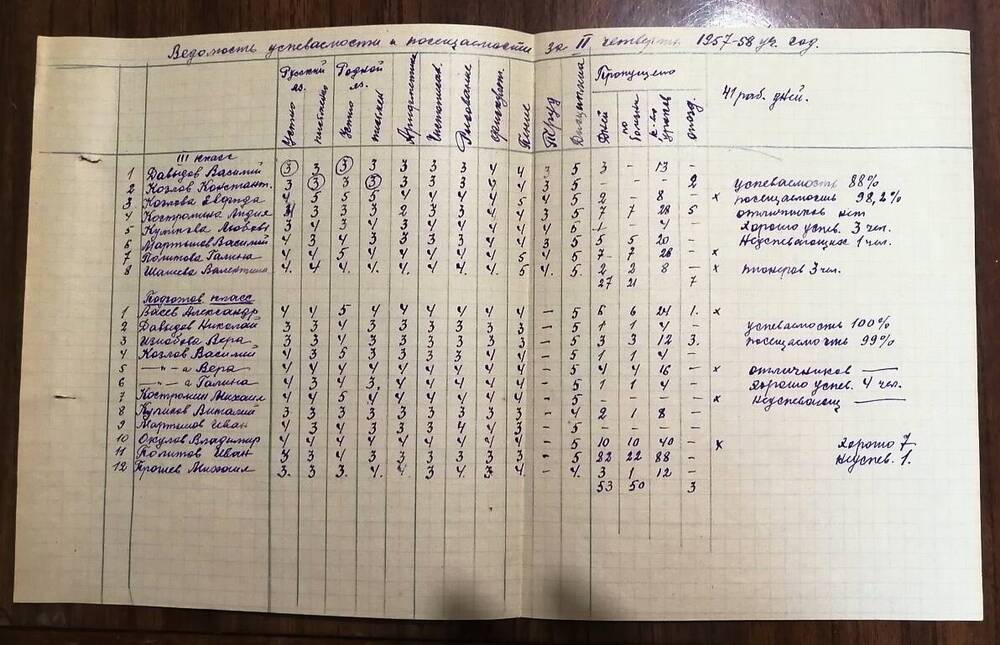 Ведомость успеваемости и посещаемости за II четверть 1957-58 уч. год.
Русский яз. Родной яз. Арифметика Чистописан. Рисование Физкульт. Пение Труд Дисциплина Пропущено 41 раб. дней.
Устно письмено Устно письмен Дней по болезни к-во уроков опозд.
III класс
1 Давыдов Василий 3 3 3 3 3 3 3 4 4 - 5 3 - 13 -
2 Козлов Констант. 3 3 3 3 3 3 3 4 4 3 5 - - - 2 успеваемость 88%
3 Козлова Звезида 4 5 5 5 4 4 4 4 5 4 5 2 - 8 - x посещаемость 98,2%
4 Костромина Лидия 3 3 3 3 2 3 3 4 4 3 5 7 7 28 5 отличников нет
5 Куликова Любовь 3 4 3 4 3 3 3 4 4 4 5 1 - 4 - Хорошо успев. 3 чел.
6 Мартышев Василий 4 3 4 3 3 3 3 4 4 3 5 5 5 20 - Неуспевающих 1 чел.
7 Политова Галина 4 4 5 4 4 4 4 4 5 4 5 7 7 28 - x
8 Валентина 4. 4. 4. 4. 4. 4. 4. 4. 5 4. 5 2 2 8 - x пионеров 3 чел.
27 21 7
Подготов. класс
1 Васев Александр 4 4 5 4 4 4 4 4 4 - 5 6 6 24 1. x
2 Давыдов Николай 3 3 4 3 3 3 3 3 3 - 5 1 1 4 - успеваемость 100%
3 Вера 3 3 4 3 3 3 3 3 3 - 5 3 3 12 3. посещаемость 99%
4 Козлов Василий 4 3 5 3 3 3 3 4 4 - 5 1 1 4 -
5 —"—"— а Вера 4 4 4 4 4 4 4 4 4 - 5 4 4 16 - x отличников —
6 —"—"— а Галина 4 3 4 3. 4 4 4 4 4 - 5 1 1 4 - Хорошо успев. 4 чел.
7 Костромин Михаил 4 4 5 4 4 4 4 4 4 - 5 - - - - x Неуспевающ —
8 Куликов Виталий 3 3 3 3 3 3 3 3 3 - 4 2 1 8 -
9 Мартышов Иван 4 3 4 3 3 3 4 3 4 - 5 - - - -
10 Окулов Владимир 4 4 4 4 4 4 4 4 4 - 5 10 10 40 - x Хорошо 7
11 Политов Иван 3 3 4 3 4 3 3 4 4 - 5 22 22 88 - Неуспев. 1.
12 Михаил 3. 3 3. 4. 4 3 4. 3 4. - 4. 3 1 12 -
53 50 3